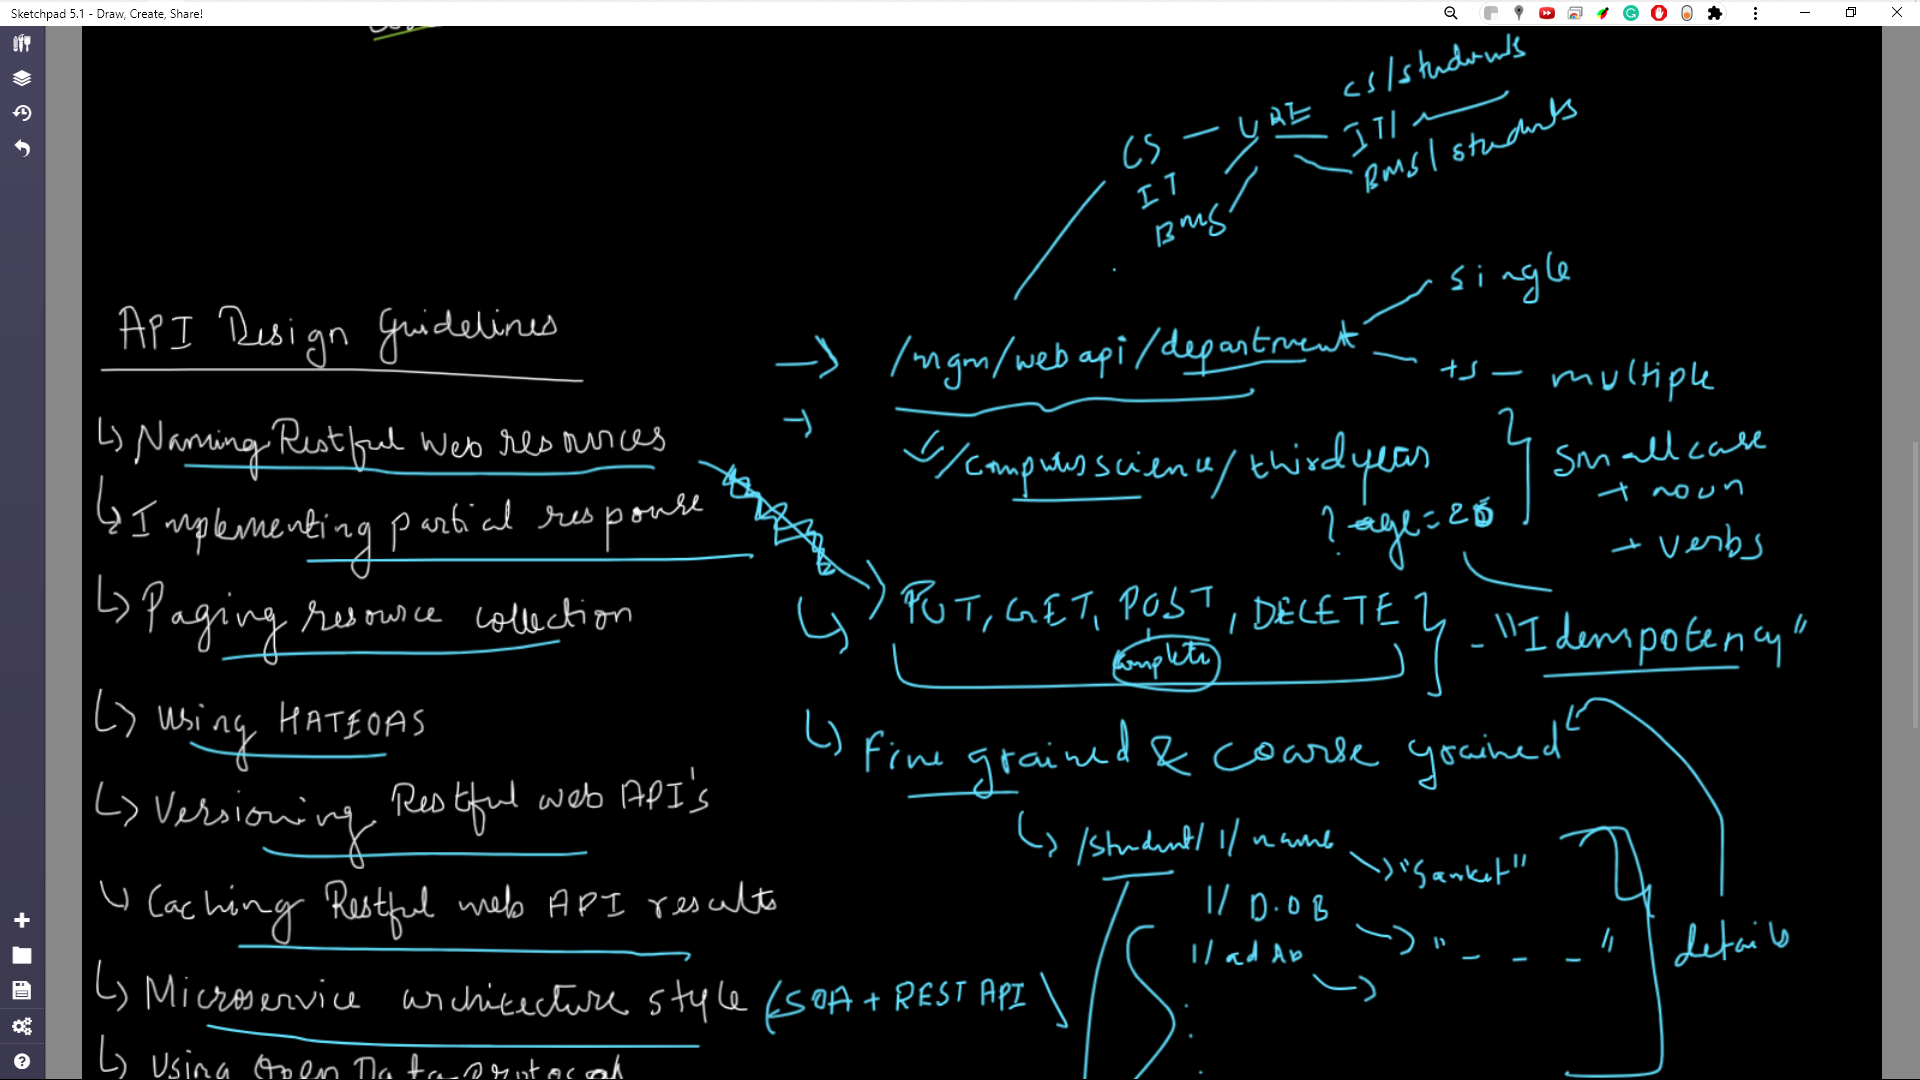 Sketchpad 5.1 - Draw, Create, Share!
CS/students
CS — URI — IT/
IT
BMS/students
BMS
API Design Guidelines
↳ Naming Restful Web resources
↳ Implementing partial response
↳ Paging resource collection
↳ Using HATEOAS
↳ Versioning Restful web API's
↳ Caching Restful web API results
↳ Microservice architecture style (SOA + REST API)
↳ Using Open Data protocol
→ /mgm/webapi/department
single
+s — multiple
/computerscience/thirdyear
? age=20
small case
+ noun
+ verbs
PUT, GET, POST, DELETE } - "Idempotency"
complete
↳ Fine grained & coarse grained
↳ /student/1/name → "Sanket"
1/D.O.B → "- - -"
1/
details